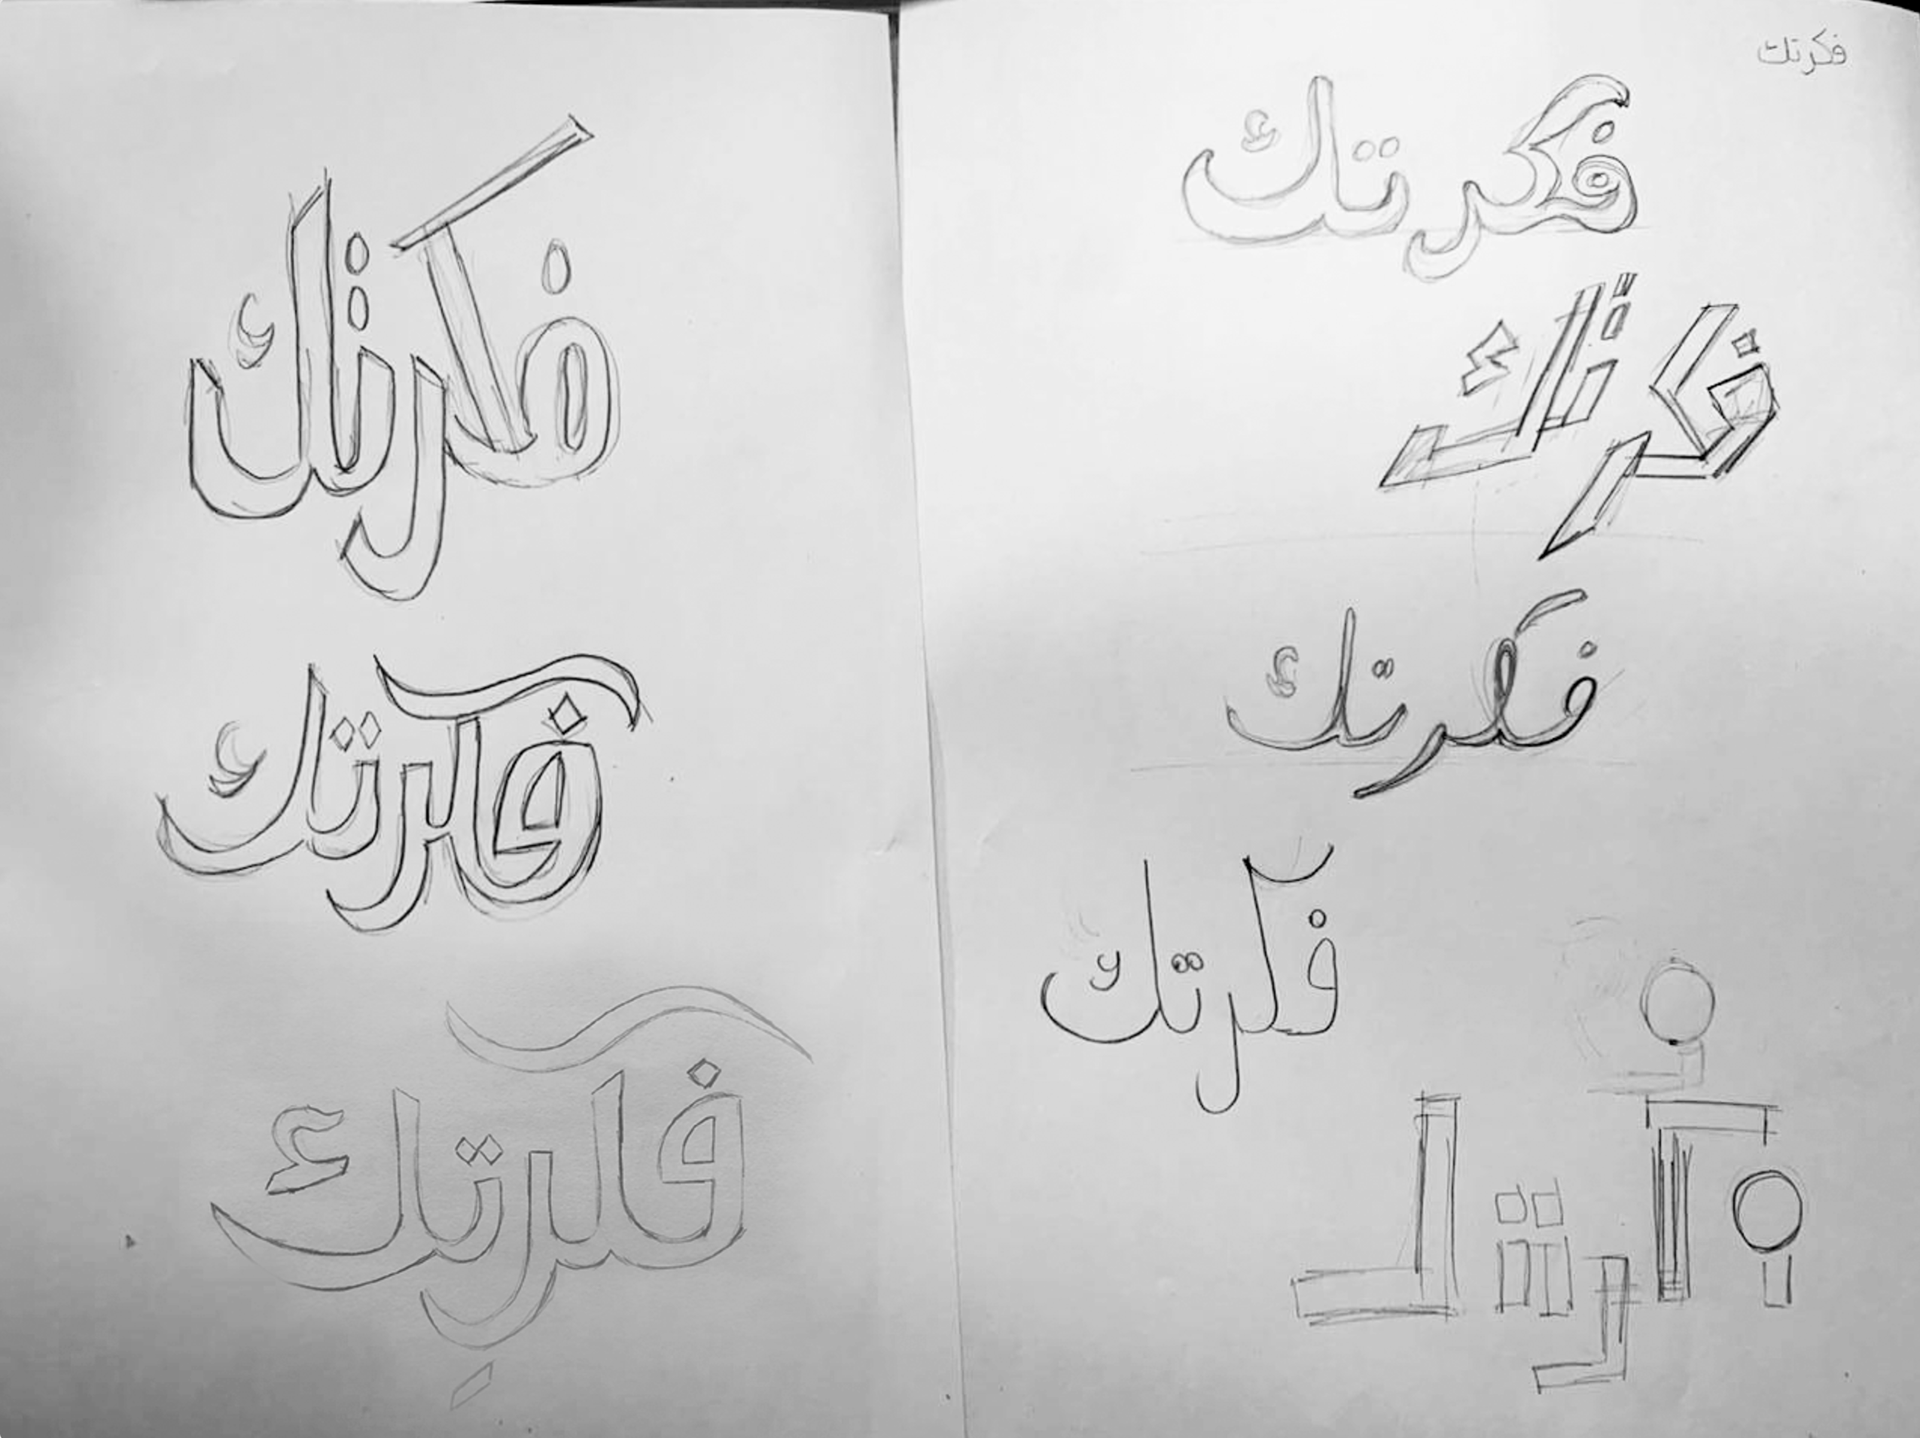 فكرتك
فكرتك
فكرتك
فكرتك
فكرتك
فكرتك
فكرتك
فكرتك
فكرتك